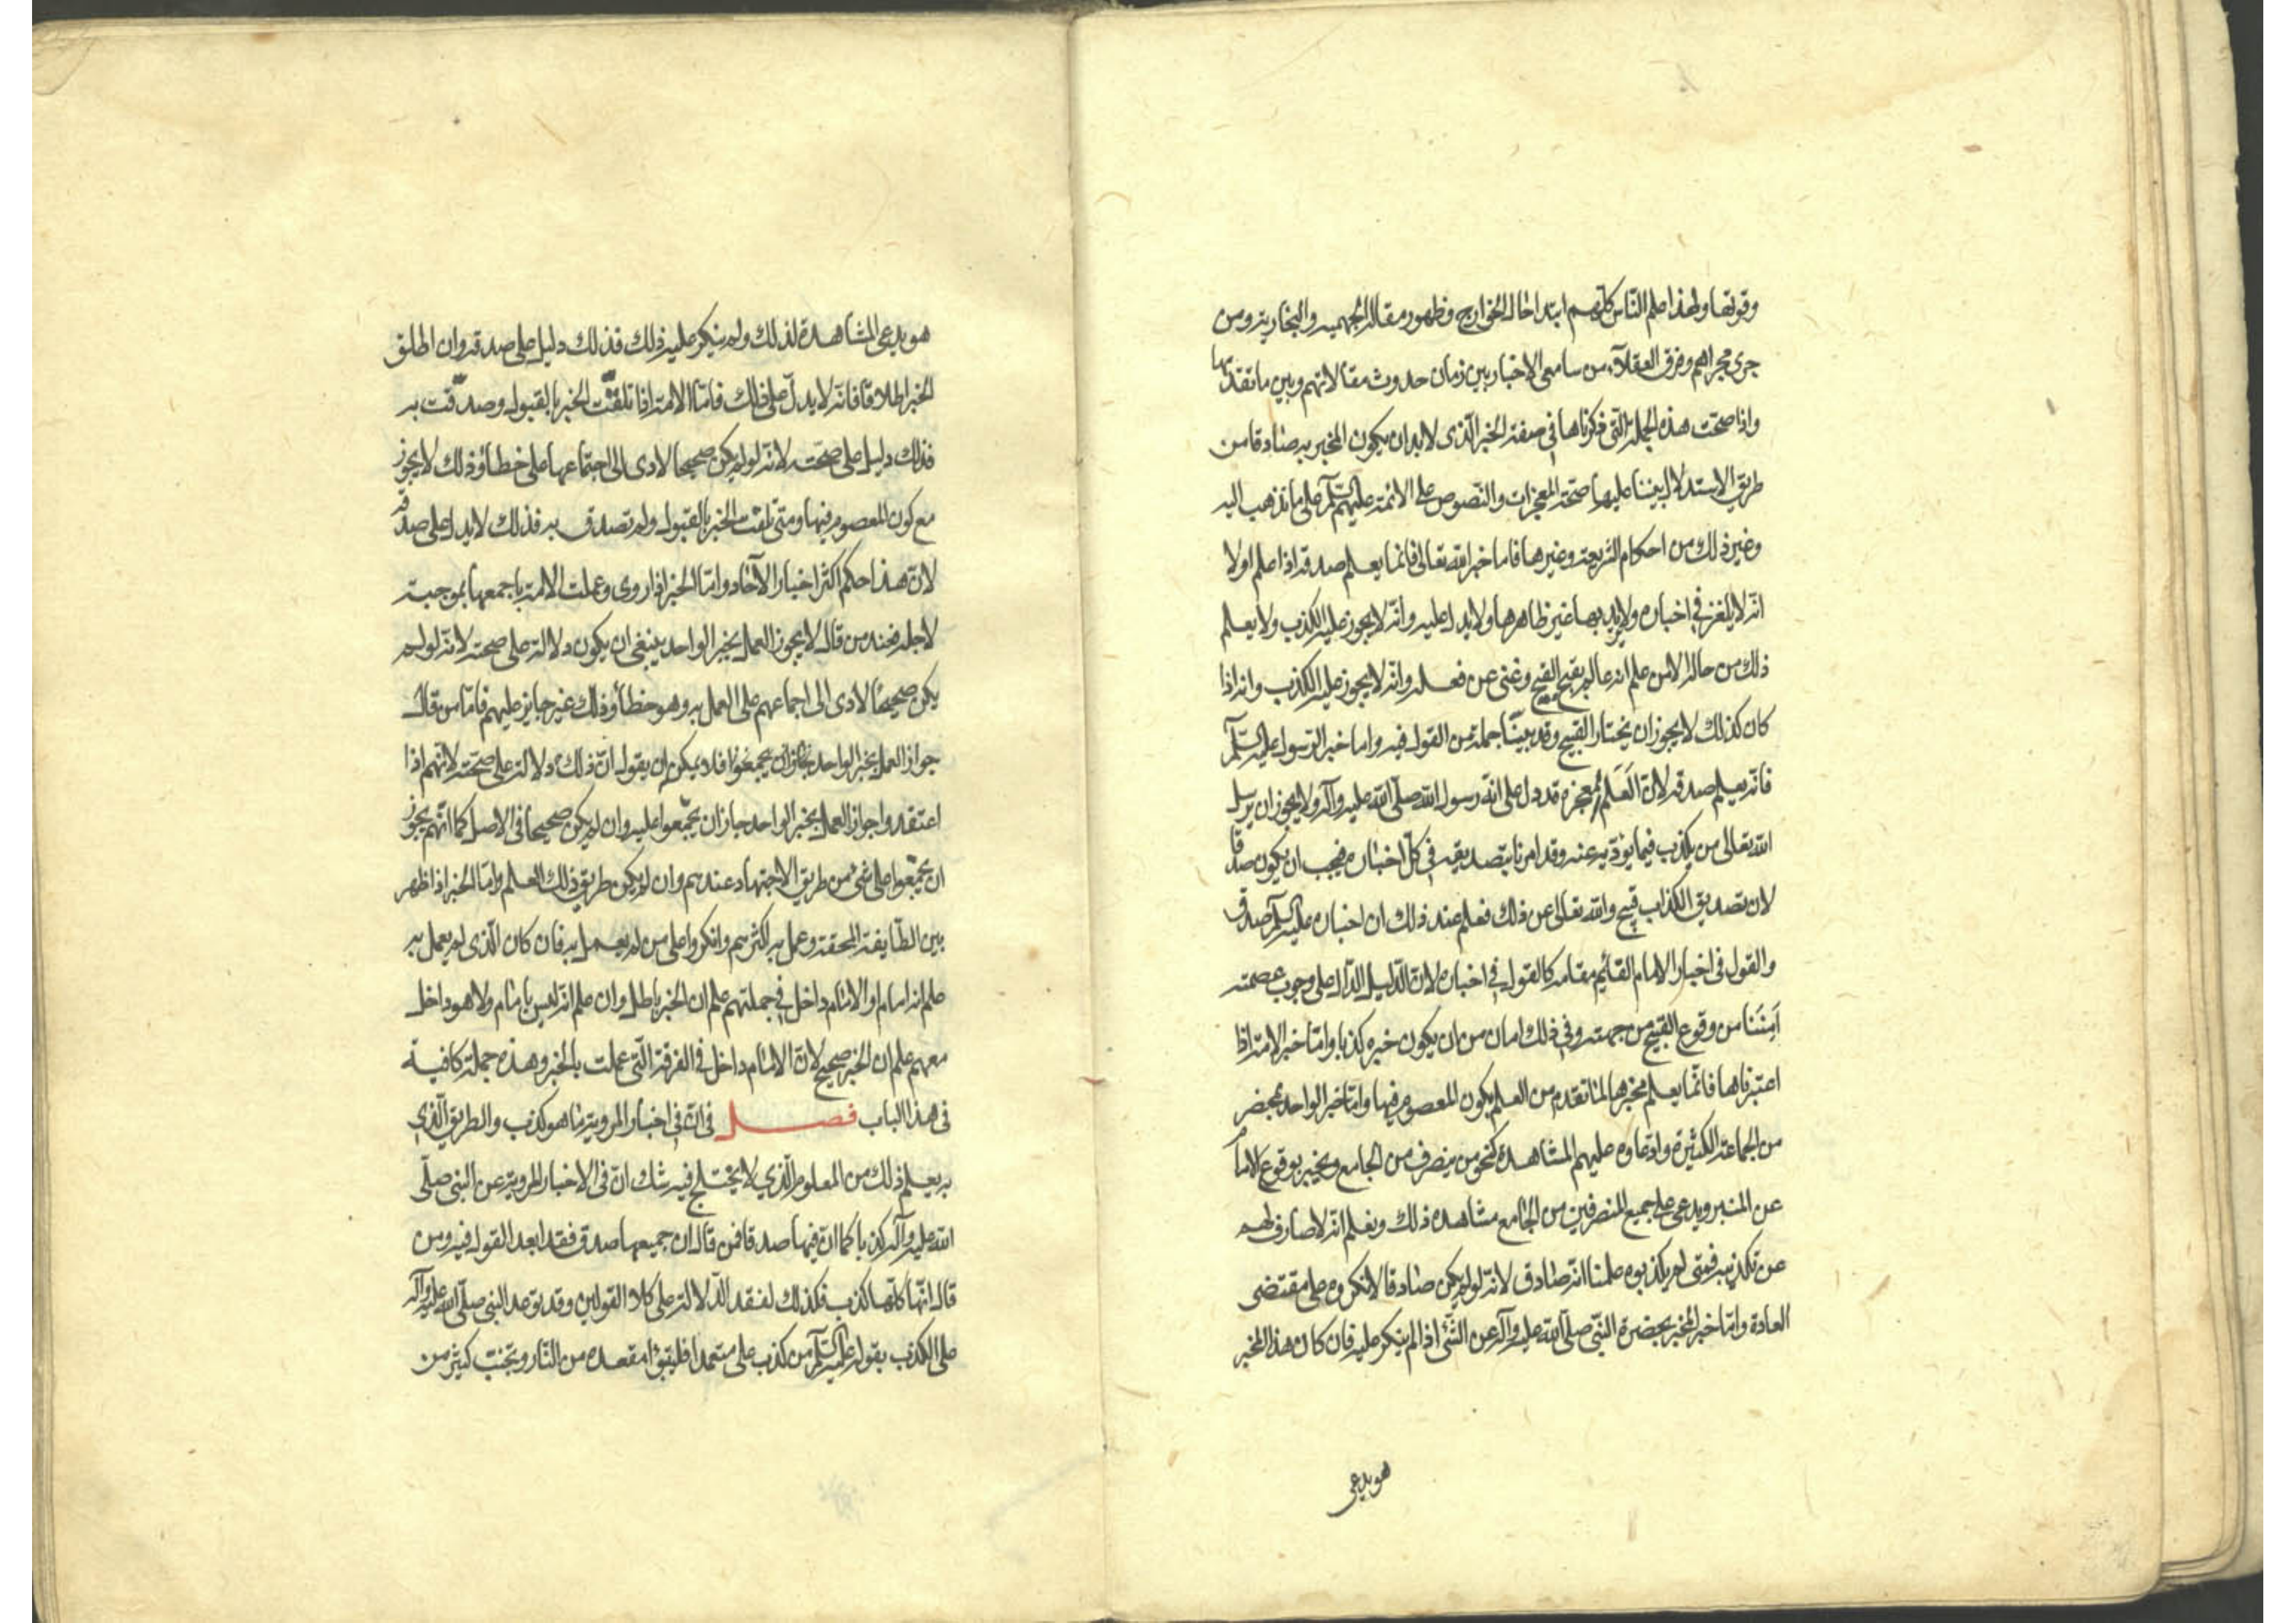 وقوتها ولهذا علم الناس كلهم ابتداء حال الخوارج وظهور مقالة الجهمية والنجارية ومن
جرى مجراهم وفرق العقلاء من سامعى الاخبار بين زمان حدوث مقالاتهم وبين ما تقدمها
واذا صحت هذه الجملة التى ذكرناها فى صفة الخبر الذى لابد ان يكون المخبر به صادقا من
طريق الاستدلال بيننا عليها صحة المعجزات والنصوص على الائمة عليهم السلم على ما نذهب اليه
وغير ذلك من احكام الشريعة وغيرها فاما خبر الله تعالى فانما يعلم صدقه اذا علم اولا
انه لا يلغز فى اخباره ولا يريد بها غير ظاهرها ولا يدل عليه وانه لا يجوز عليه الكذب ولا يعلم
ذلك من حاله الا من علم انه عالم بقبح القبيح وغنى عن فعله وانه لا يجوز عليه الكذب وانه اذا
كان كذلك لا يجوز ان يختار القبيح وقد بينا جملة من القول فيه واما خبر الرسول عليه السلم
فانه يعلم صدقه لان العلم المعجزة قد دل على انه رسول الله صلى الله عليه وآله ولا يجوز ان يرسل
الله تعالى من يكذب فيما يؤديه عنه وقد امرنا بتصديقه فى كل اخباره فيجب ان يكون صدقا
لان تصديق الكذاب قبيح والله تعالى عن ذلك فعلم عند ذلك ان اخباره عليه السلم صدق
والقول فى اخبار الامام القائم مقامه كالقول فى اخباره لان الدليل الدال على وجوب عصمته
آمننا من وقوع القبيح من جهته وفى ذلك امان من ان يكون خبره كذبا واما خبر الامة اذا
اعتبرناها فانما يعلم مخبرها لما تقدم من العلم بكون المعصوم فيها واما خبر الواحد بمحضر
من الجماعة الكثيرة وادعاوه عليهم المشاهدة كنحو من ينصرف من الجامع ويخبر بوقوع الامام
عن المنبر ويدعى على جميع المنصرفين من الجامع مشاهدة ذلك ونعلم انه لا صارف لهم
عن تكذيبه فمتى لم يكذبوه علمنا انه صادق لانه لو لم يكن صادقا لانكروه على مقتضى
العادة واما خبر المخبر بحضرة النبى صلى الله عليه وآله عن الشئ اذا لم ينكر عليه فان كان هذا المخبر
هو يدعى
هو يدعى المشاهدة لذلك ولم ينكر عليه ذلك فذلك دليل على صدقه وان اطلق
الخبر اطلاقا فانه لا يدل على ذلك فاما الامة اذا تلقت الخبر بالقبول وصدقت به
فذلك دليل على صحته لانه لو لم يكن صحيحا لادى الى اجتماعها على خطأ وذلك لا يجوز
مع كون المعصوم فيها ومتى تلقت الخبر بالقبول ولم تصدق به فذلك لا يدل على صدقه
لان هذا حكم اكثر اخبار الآحاد واما الخبر اذا روى وعملت الامة باجمعها بموجبه
لاجله فعند من قال لا يجوز العمل بخبر الواحد ينبغى ان يكون دلالة على صحته لانه لو لم
يكن صحيحا لادى الى اجماعهم على العمل به وهو خطأ وذلك غير جايز عليهم فاما من قال
جواز العمل بخبر الواحد بجازان يجمعوا فلا يمكن ان يقول ان ذلك دلالة على صحته لانهم اذا
اعتقدوا جواز العمل بخبر الواحد جاز ان يجمعوا عليه وان لم يكن صحيحا فى الاصل كما انهم يجوز
ان يجمعوا على شئ من طريق الاجتهاد عندهم وان لم يكن طريق ذلك العلم واما الخبر اذا ظهر
بين الطايفة المحقة وعمل به اكثرهم وانكروا على من لم يعمل به فان كان الذى لم يعمل به
علم انه امام او الامام داخل فى جملتهم علم ان الخبر باطل وان علم انه ليس بامام ولا هو داخل
معهم علم ان الخبر صحيح لان الامام داخل فى الفرقة التى عملت بالخبر وهذه جملة كافية
فى هذا الباب فصل فى ان فى اخبار المروية ما هو كذب والطريق الذى
به يعلم ذلك من المعلوم الذي لا يختلج فيه شك ان فى الاخبار المروية عن النبى صلى
الله عليه وآله كذبا كما ان فيها صدقا فمن قال ان جميعها صدق فقد ابعد القول فيه ومن
قال انها كلها كذب فكذلك لفقد الدلالة على كلا القولين وقد توعد النبى صلى الله عليه وآله
على الكذب بقوله عليه السلم من كذب على متعمدا فليتبوأ مقعده من النار وتجنب كثير من